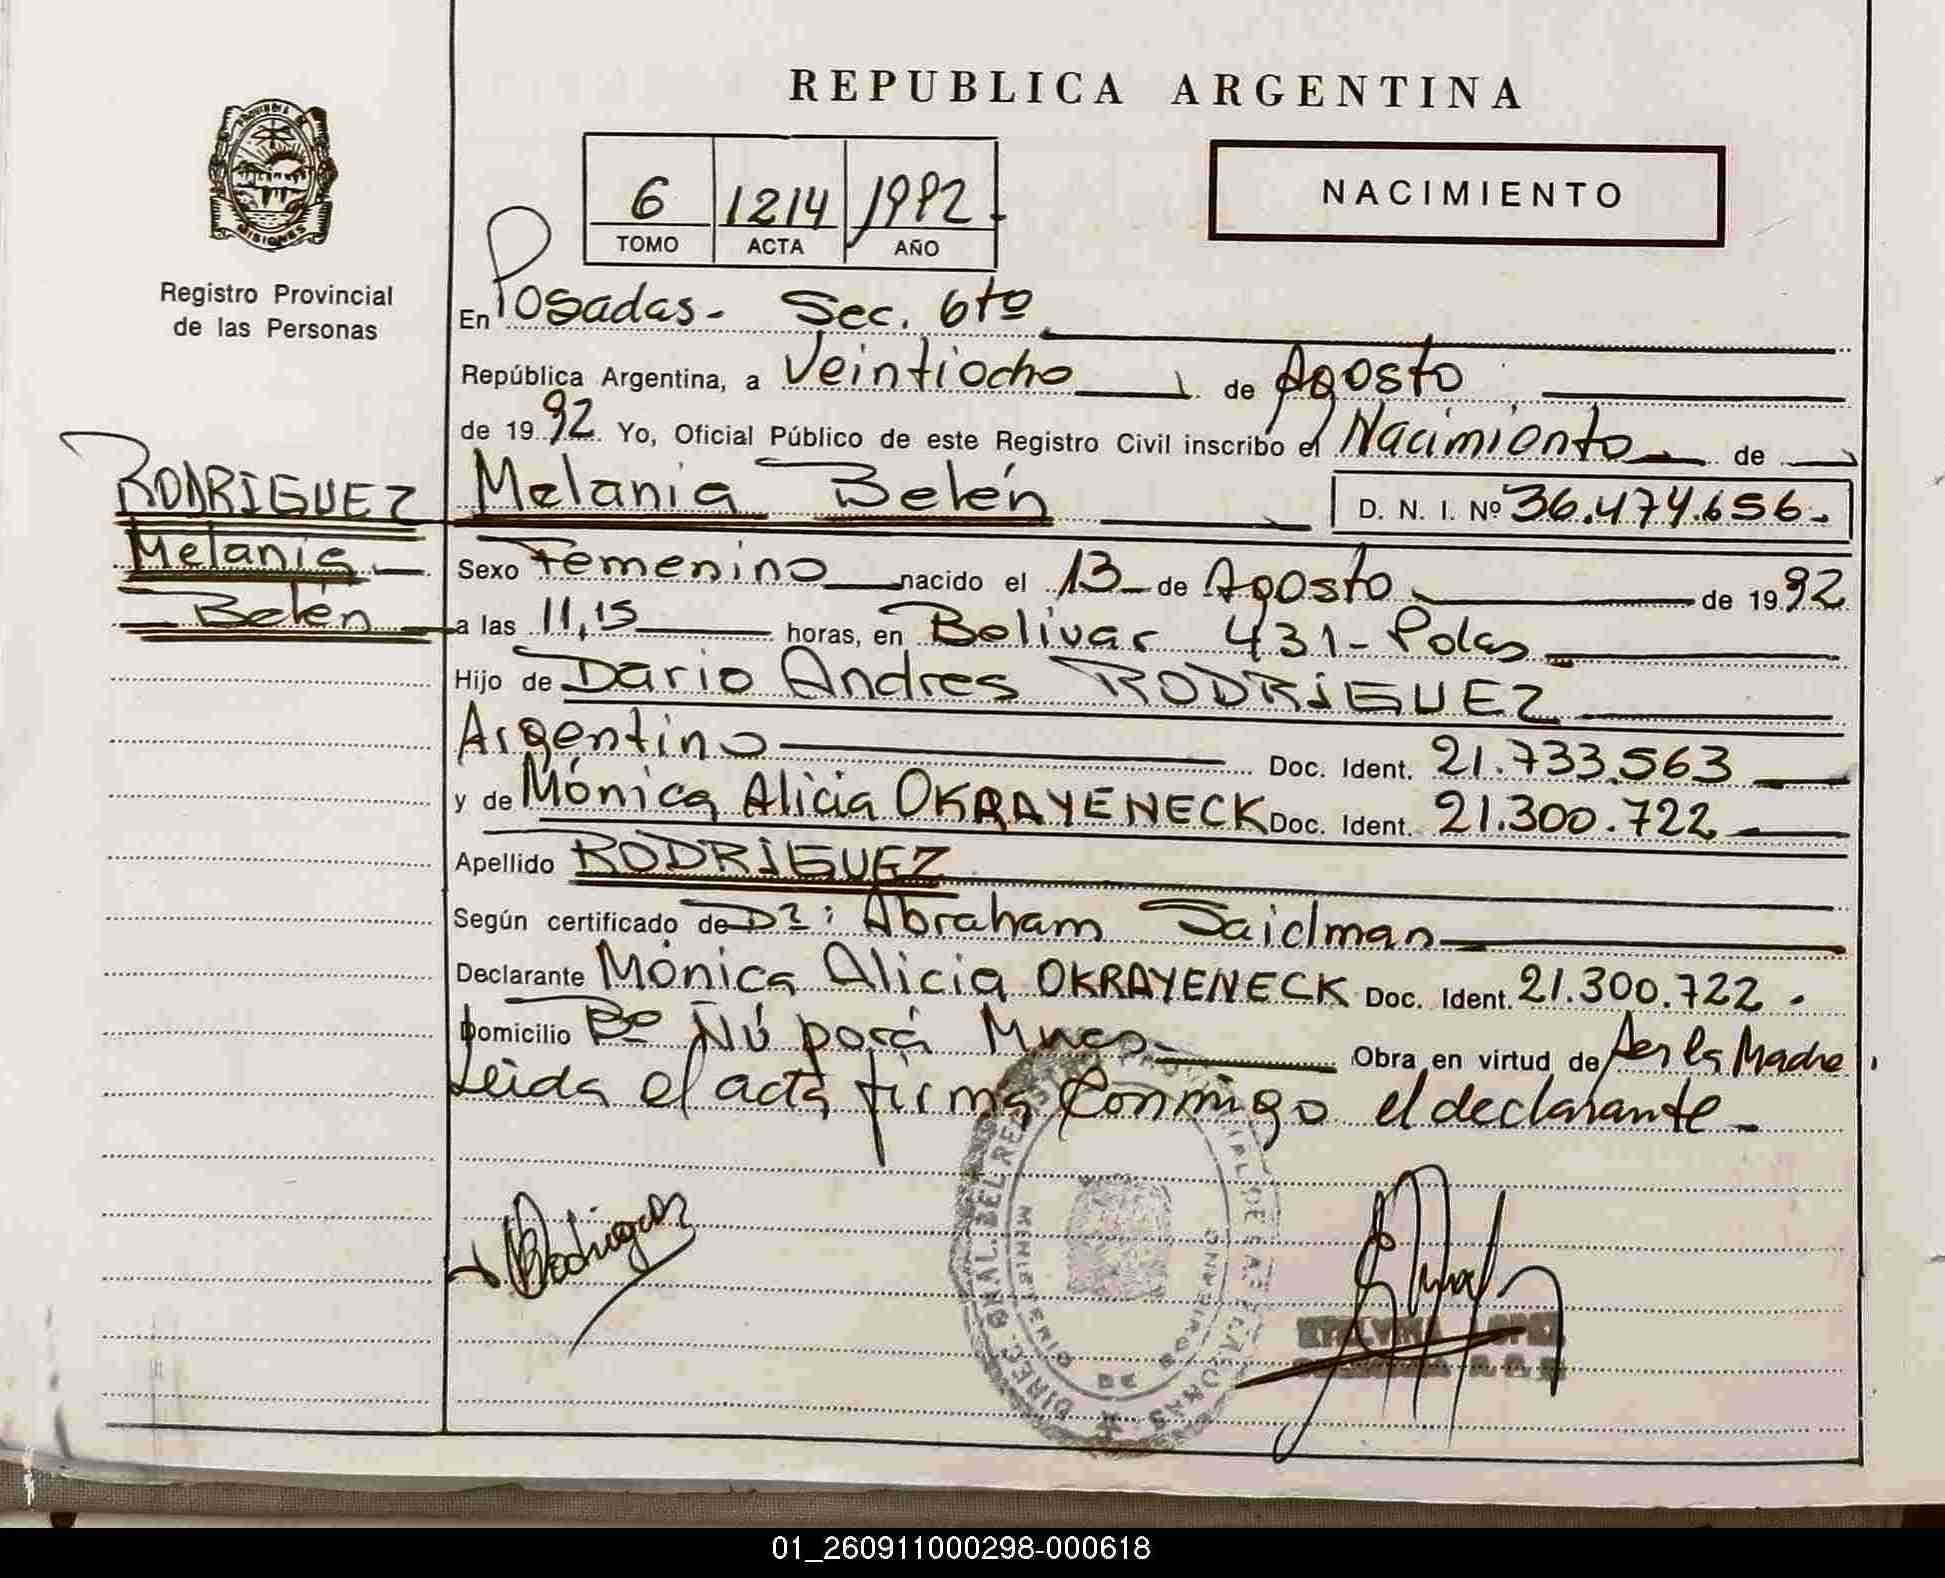 REPUBLICA ARGENTINA
PROVINCIA DE
MISIONES
Registro Provincial
de las Personas
6 1214 1992
TOMO ACTA AÑO
NACIMIENTO
En Posadas - Sec. 6to
República Argentina, a Veintiocho de Agosto
de 1992 Yo, Oficial Público de este Registro Civil inscribo el Nacimiento de
RODRIGUEZ
Melania
Belén
Melania Belén D. N. I. Nº 36.474.656.
Sexo Femenino nacido el 13 de Agosto de 1992
a las 11,15 horas, en Bolivar 431 - Pdas
Hijo de Dario Andres RODRIGUEZ
Argentino Doc. Ident. 21.733.563
y de Mónica Alicia OKRAYENECK Doc. Ident. 21.300.722
Apellido RODRIGUEZ
Según certificado de Dr: Abraham Saidman
Declarante Mónica Alicia OKRAYENECK Doc. Ident. 21.300.722.
Domicilio Bº Ñú porá Mnes Obra en virtud de ser la Madre
Leida el acta firma conmigo el declarante
DIREC. GRAL. DEL REG. PROVINCIAL DE LAS PERSONAS
MINISTERIO DE GOBIERNO
Rodriguez
01_260911000298-000618